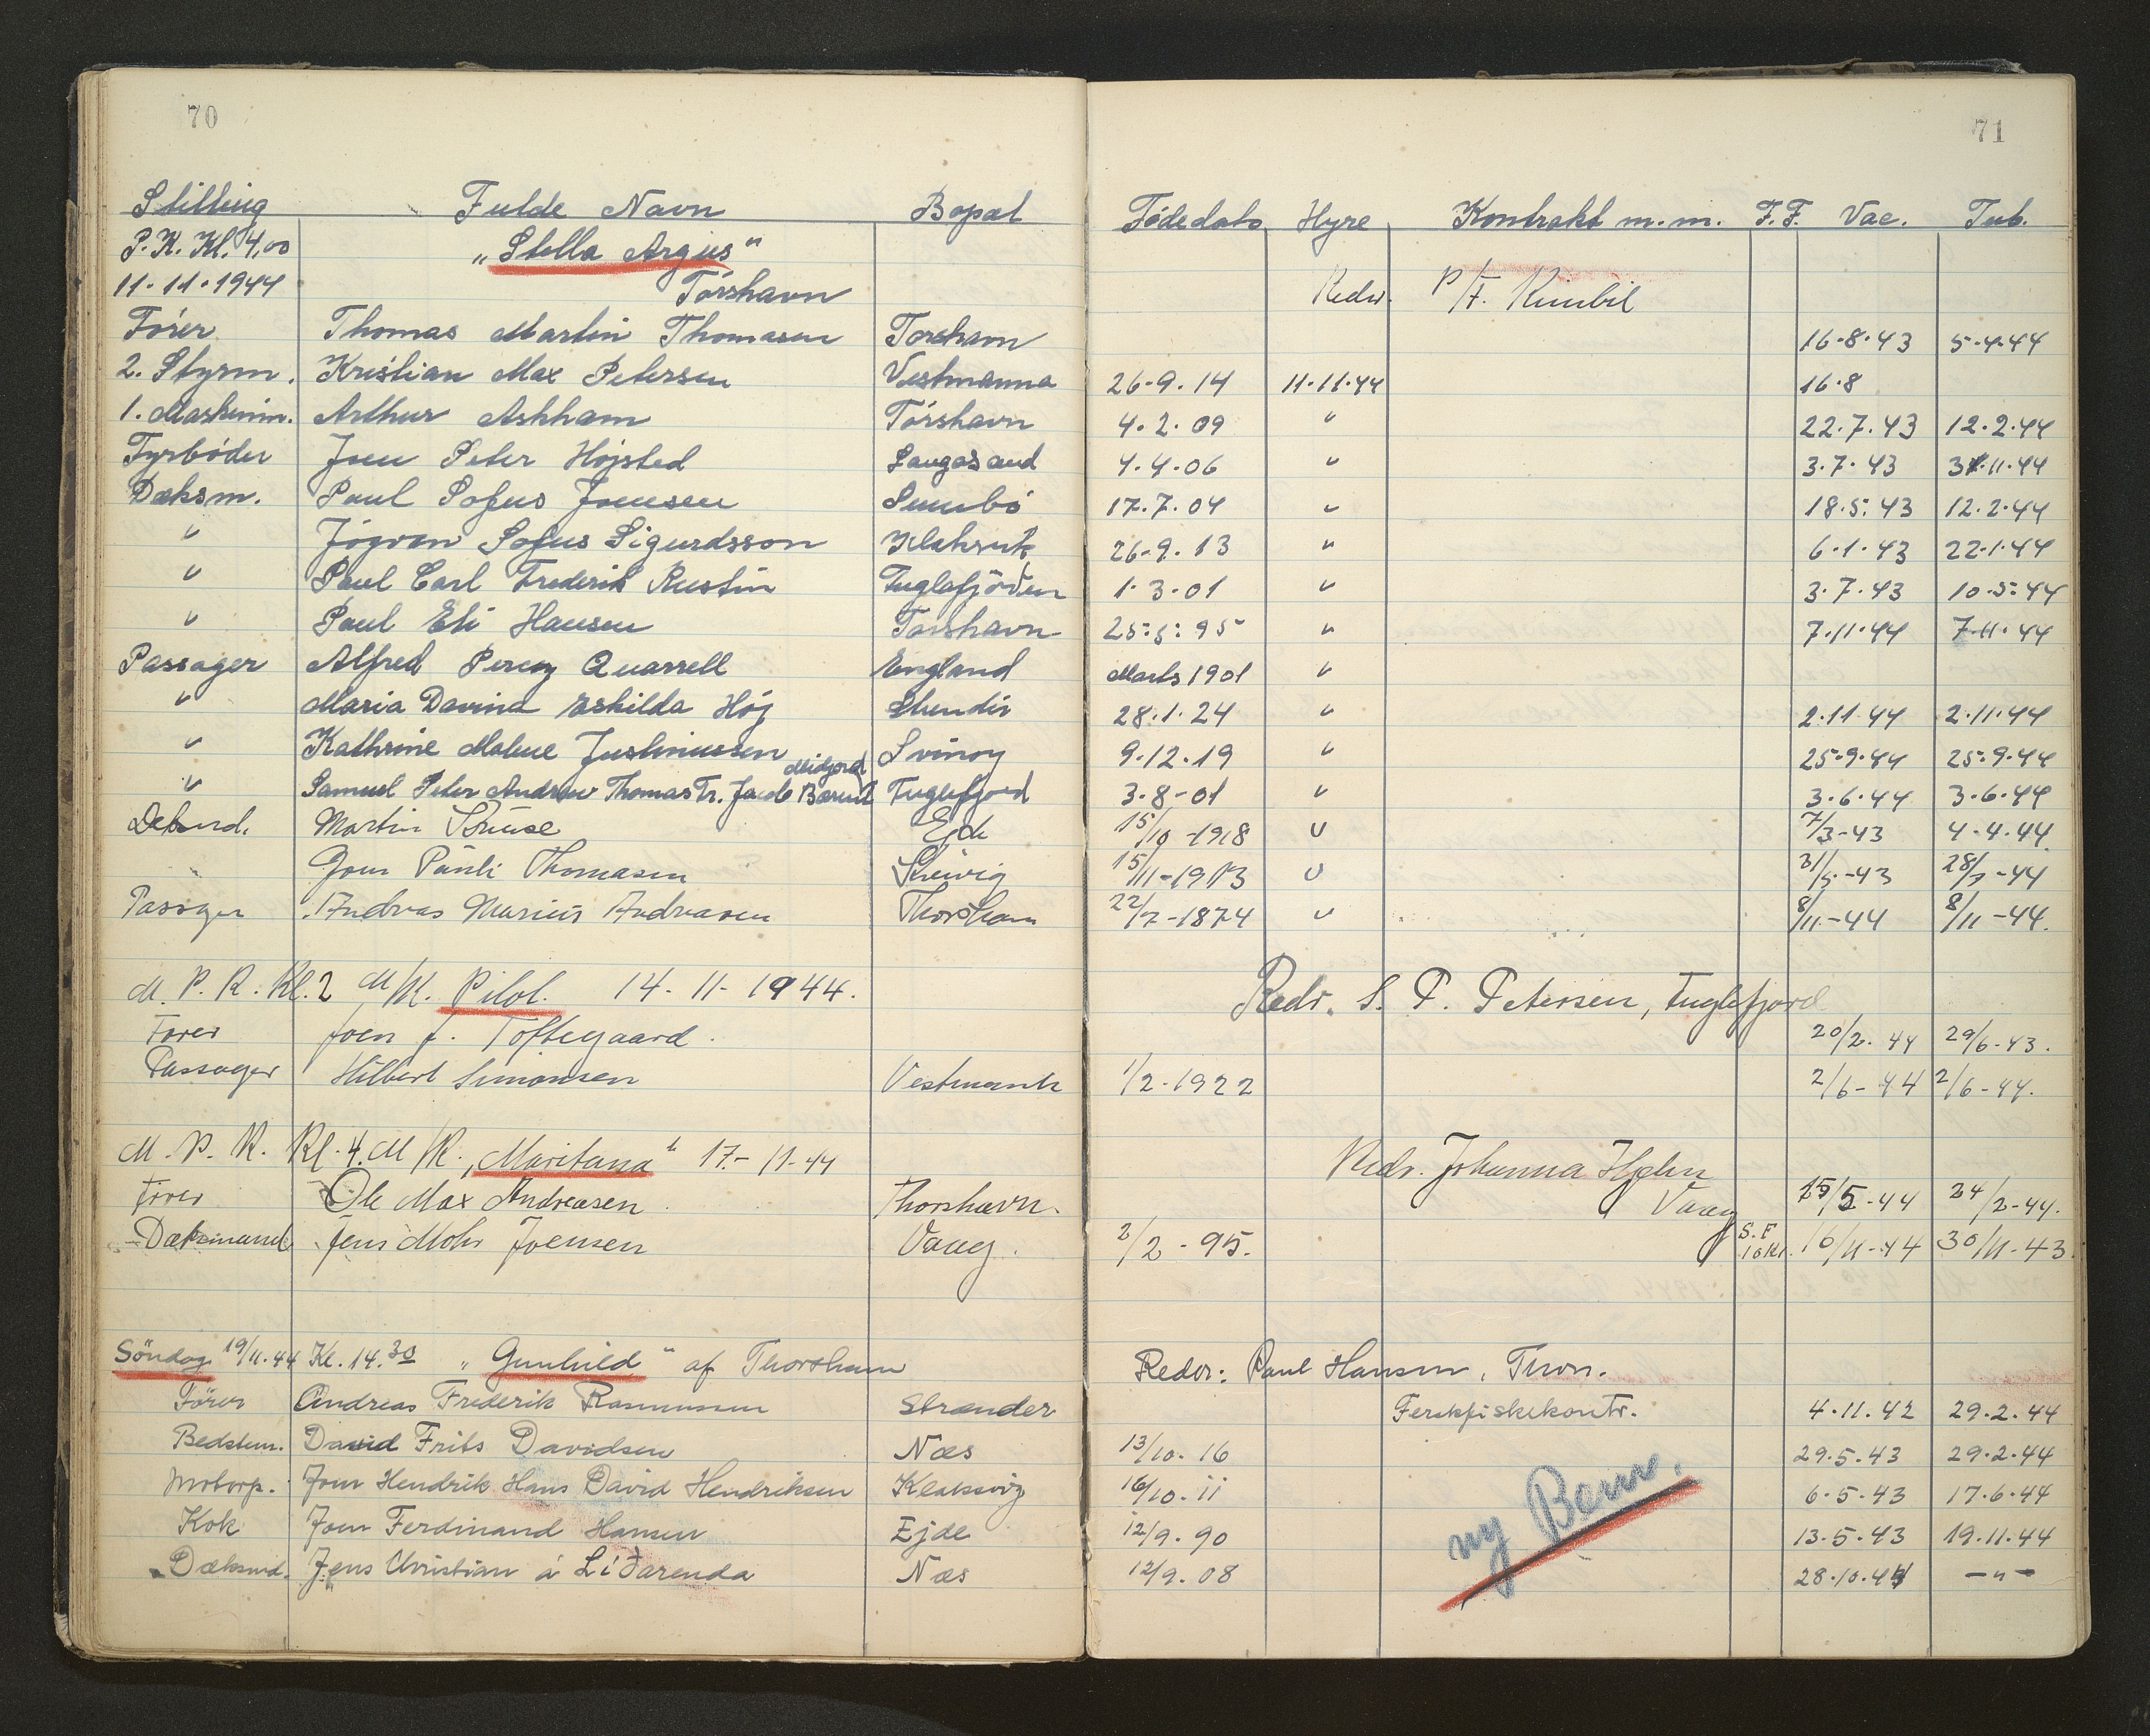 70
71
Stilling Fulde Navn Bopæl Fødedato Hyre Kontrakt m.m. F.F. Vac. Tub.
P.K. Kl. 4,00 "Stella Argus"
11-11-1944 Tórshavn Redr. P/F.
Fører Thomas Martin Thomasen Torshavn 16-8-43 5-4-44
2. Styrm. Kristian Max Petersen Vestmanna 26-9.14 11.11.44 16-8
1. Maskinm. Arthur Askham Tórshavn 4.2.09 " 22.7.43 12.2.44
Fyrbøder Joen Peter Højsted Saugasand 4.4.06 " 3.7.43 11.44
Dæksm. Paul Sofus Joensen Sumbö 17.7.04 " 18.5.43 12.2.44
" Jógvan Sofus Sigurdsson 26-9.13 " 6.1.43 22.1.44
" Paul Carl Frederik Rustin Fuglafjörður 1.3.01 " 3.7.43 10.5.44
" Paul Eli Hansen Torshavn 25.5.95 " 7.11.44 7.11.44
Passager Alfred Percy Quarrell England Marts 1901 "
" Maria Davina Eskilda Høj 28.1.24 " 2.11.44 2.11.44
" Kathrine Malene Justinussen Svinoy 9.12.19 " 25.9.44 25.9.44
Midjord
" Samuel Peter Andrew Thomas Fr. Jacob Barent Fuglefjord 3-8-01 " 3.6.44 3.6.44
Deksmd. Martin Ejde 15/10-1918 " 7/3-43 4.4.44
Joen Páuli Thomasen 15/11-1913 " 31/5-43 -44
Passager Andreas Marius Andreasen Thorshavn 22/7-1874 " 8/11-44 8/11-44.
M.P.K. Kl.2 M/K. Pilot. 14-11-1944. Redr. S. P. Petersen, Fuglefjord
Fører Joen J. Toftegaard. 20/2-44 29/6-43.
Passager Hilbert Simonsen Vestmanh 1/2-1922 2/6-44 2/6-44.
M.P.K. Kl.4. M/K. "Maritana" 17-11-44 Redr. Johanna
Vaag
Fører Ole Max Andreasen Thorshavn. -44 24/2-44.
Dæksmand Jens Mohr Joensen Vaag. 2/2-95. S.F 10Kr. 16/11-44 30/11-43
Söndag 19/11-44 Kl. 14.30 "Gunhild" af Thorshavn Redr: Paul Hansen, Thvn.
Förer Andreas Frederik Rasmussen Strænder Ferskfiskekontr. 4.11.42 29.2.44
Bedstem. David Frits Davidsen Næs 13/10.16 29.5.43 29.2.44
Motorp. Joen Hendrik Hans David Hendriksen Klaksvig 16/10.11 6.5.43 17.6.44
Kok Joen Ferdinand Hansen Ejde 12/9.90 13.5.43 19.11.44
Dæksmd. Jens Christian á Líðarenda Næs 12/9.08 28.10.44 -"-
ny Bem.